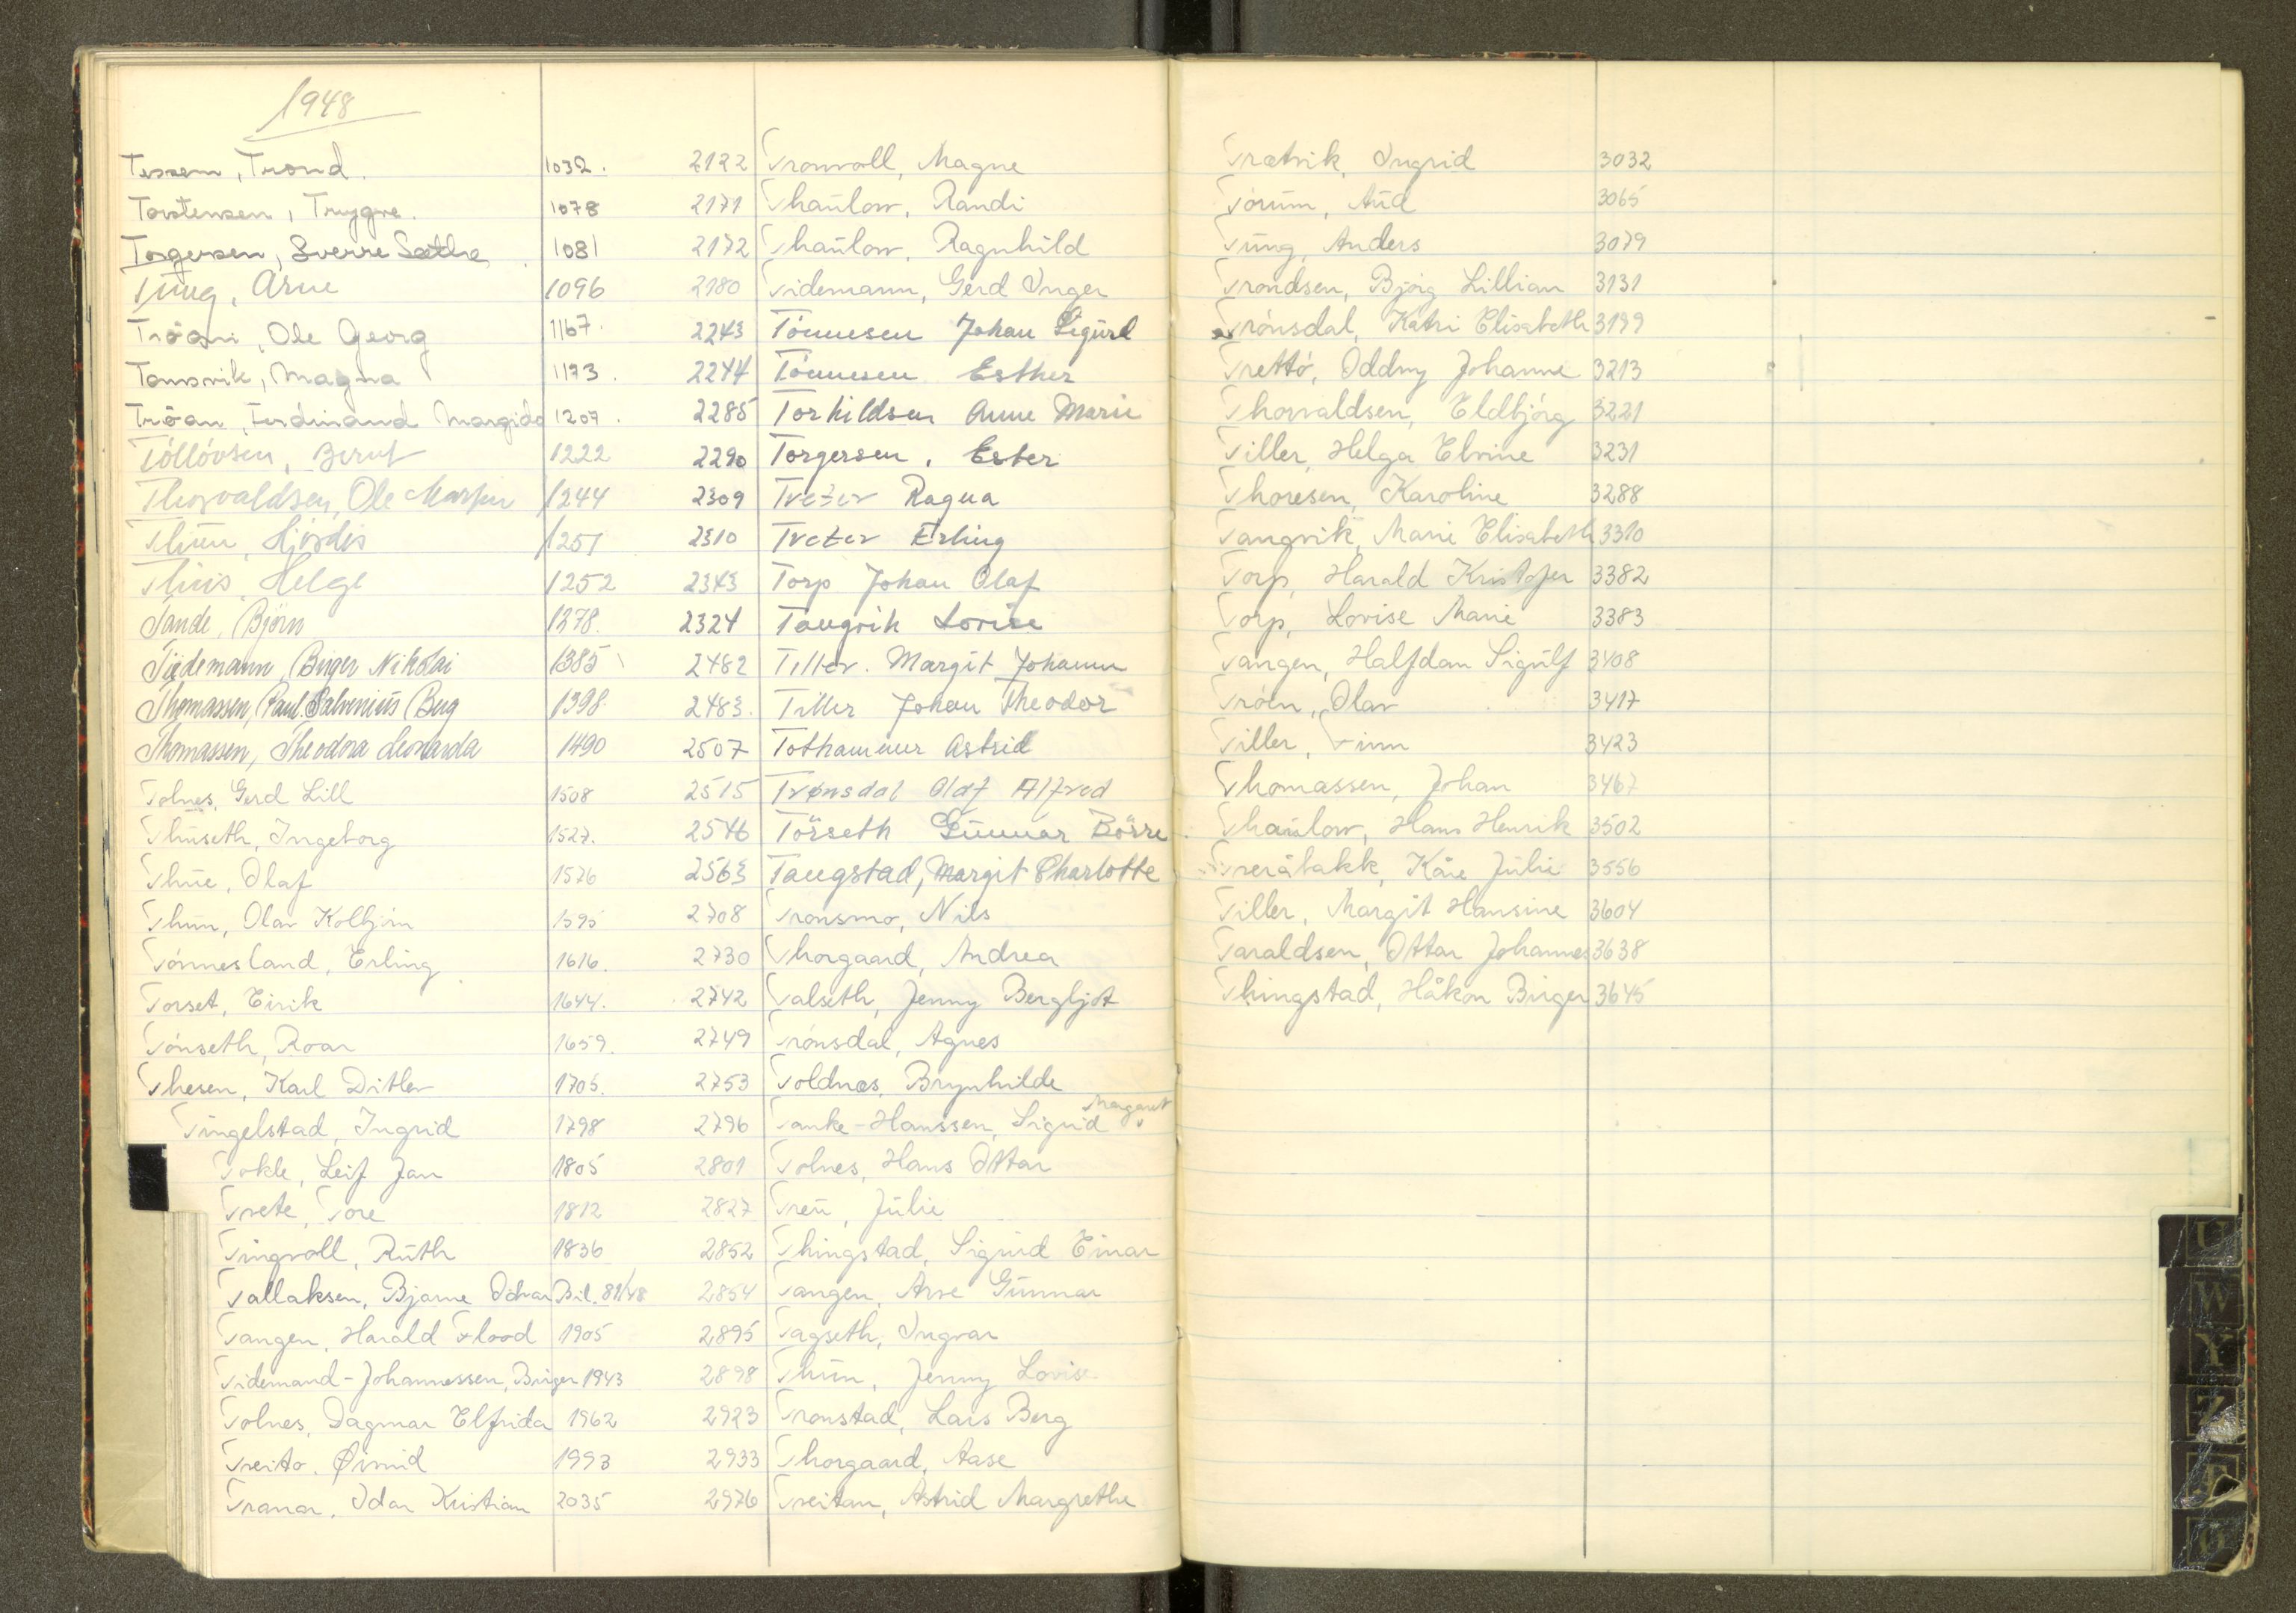 1948
Tessem, Trond. 1032.
Torstensen, Trygve. 1078
Torgersen, Sverre Sæthe 1081
Tiüng, Arne 1096
Tröan, Ole Georg 1167.
Tonsvik, Magna 1173.
Tröan, Ferdinand Margido 1207.
Töllövsen, Bernt 1222
Thorvaldsen, Ole Martin 1244
Thün, Hjördis 1251
Thiis, Helge 1252
Tande, Björn 1378.
Tiedemann, Birger Nikolai 1385
Thomassen, Paul Salvenius Berg 1398
Thomassen, Theodora Leonarda 1490
Tolnes, Gerd Lill 1508
Thüseth, Ingeborg 1527.
Thüe, Olaf 1576
Thün, Olav Kolbjörn 1595
Tönnesland, Erling 1616.
Torset, Eirik 1644.
Tönseth, Roar 1659.
Thesen, Karl Ditlev 1705.
Tingelstad, Ingrid 1798
Tokle, Leif Jan 1805
Trete, Tore 1812
Tingvoll, Rüth 1836
Tallaksen, Bjarne Odvar Bil. 81/48
Tangen, Harald Flood 1905
Tidemand-Johannessen, Birger 1943
Tolnes, Dagmar Elfrida 1962
Treito, Øivind 1993
Trana, Idar Kristian 2035
2122 Tronvoll, Magne
2171 Thaülow, Randi
2172 Thaülow, Ragnhild
2180 Tidemann, Gerd Inger
2243 Tönnesen Johan Sigürd
2244 Tönnesen Esther
2285 Torkildsen Anne Marie
2290 Torgersen, Ester
2309 Treter Ragna
2310 Treter Erling
2343 Torp Johan Olaf
2324 Tangvik Lovise
2482 Tiller. Margit Johanne
2483. Tiller Johan Theodor
2507 Tothammer Astrid
2515 Trønsdal Olaf Alfred
2546 Törseth Günnar Börre
2563 Taugstad, Margit Charlotte
2708 Tronsmo, Nils
2730 Thorgaard, Andrea
2742 Talseth, Jenny Bergljot
2749 Trönsdal, Agnes
2753 Toldnæs, Brynhilde
2796 Tanke-Hanssen, Sigrid Margaret
2801 Tolnes, Hans Ottar
2827 Treü, Jülie
2852 Thingstad, Sigürd Einar
2854 Tangen, Arve Günnar
2895 Tagseth, Ingvar
2898 Thün, Jenny Lovise
2923 Tronstad, Lars Berg
2933 Thorgaard, Aase
2976 Treitan, Astrid Margrethe
Trætvik, Ingrid 3032
Törüm, Aüd 3065
Tüng, Anders 3079
Tröndsen, Bjørg Lillian 3131
Trönsdal, Katri Elisabeth 3199
Trettö, Oddny Johanne 3213
Thorvaldsen, Eldbjörg 3221
Tiller, Helga Elvine 3231
Thoresen, Karoline 3288
Tangvik, Marie Elisabeth 3310
Torp, Harald Kristofer 3382
Torp, Lovise Marie 3383
Tangen, Halfdan Sigülf 3408
Tröen, Olav 3417
Tiller, Finn 3423
Thomassen, Johan 3467
Thaülow, Hans Henrik 3502
Treråbakk, Kåre Jülie 3556
Tiller, Margit Hansine 3604
Taraldsen, Ottar Johannes 3638
Thingstad, Håkon Birger 3645
U
W
Y
Z